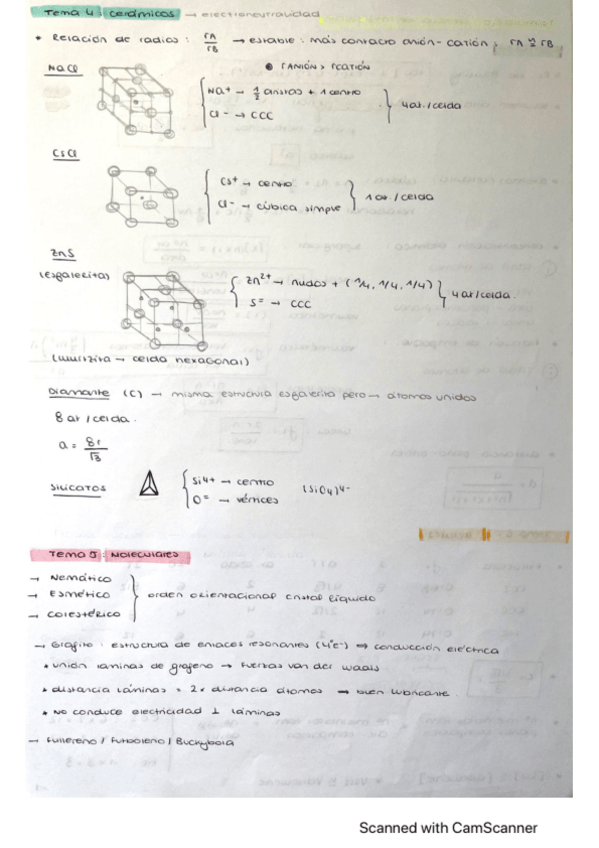 Tema 4: cerámicos → electroneutralidad
• Relación de radios: rA/rB → estable: más contacto anión-catión,
• rANIÓN > rCATIÓN
NaCl
Na+ → 1/2 aristas + 1 centro
Cl- → CCC
4 at./celda
CsCl
Cs+ → centro
Cl- → cúbica simple
1 at./celda
ZnS
(esfalerita)
Zn2+ → nudos + (1/4, 1/4, 1/4)
S= → CCC
4 at/celda.
(wurtzita → celda hexagonal)
Diamante (C) → misma estructura esfalerita pero → átomos unidos
8 at/celda.
a = 8r/√3
Silicatos
Si4+ → centro
O= → vértices
(SiO4)4-
Tema 5: Moleculares
→ Nemático
→ Esmético
→ Colestérico
orden orientacional cristal líquido
→ Grafito: estructura de enlaces resonantes (4ºe-) ⇒ conducción eléctrica
• unión láminas de grafeno → fuerzas van der waals
• distancia láminas = 2x distancia átomos → buen lubricante.
• No conduce electricidad ⊥ láminas
→ Fullereno / Futboleno / Buckybola
Scanned with CamScanner